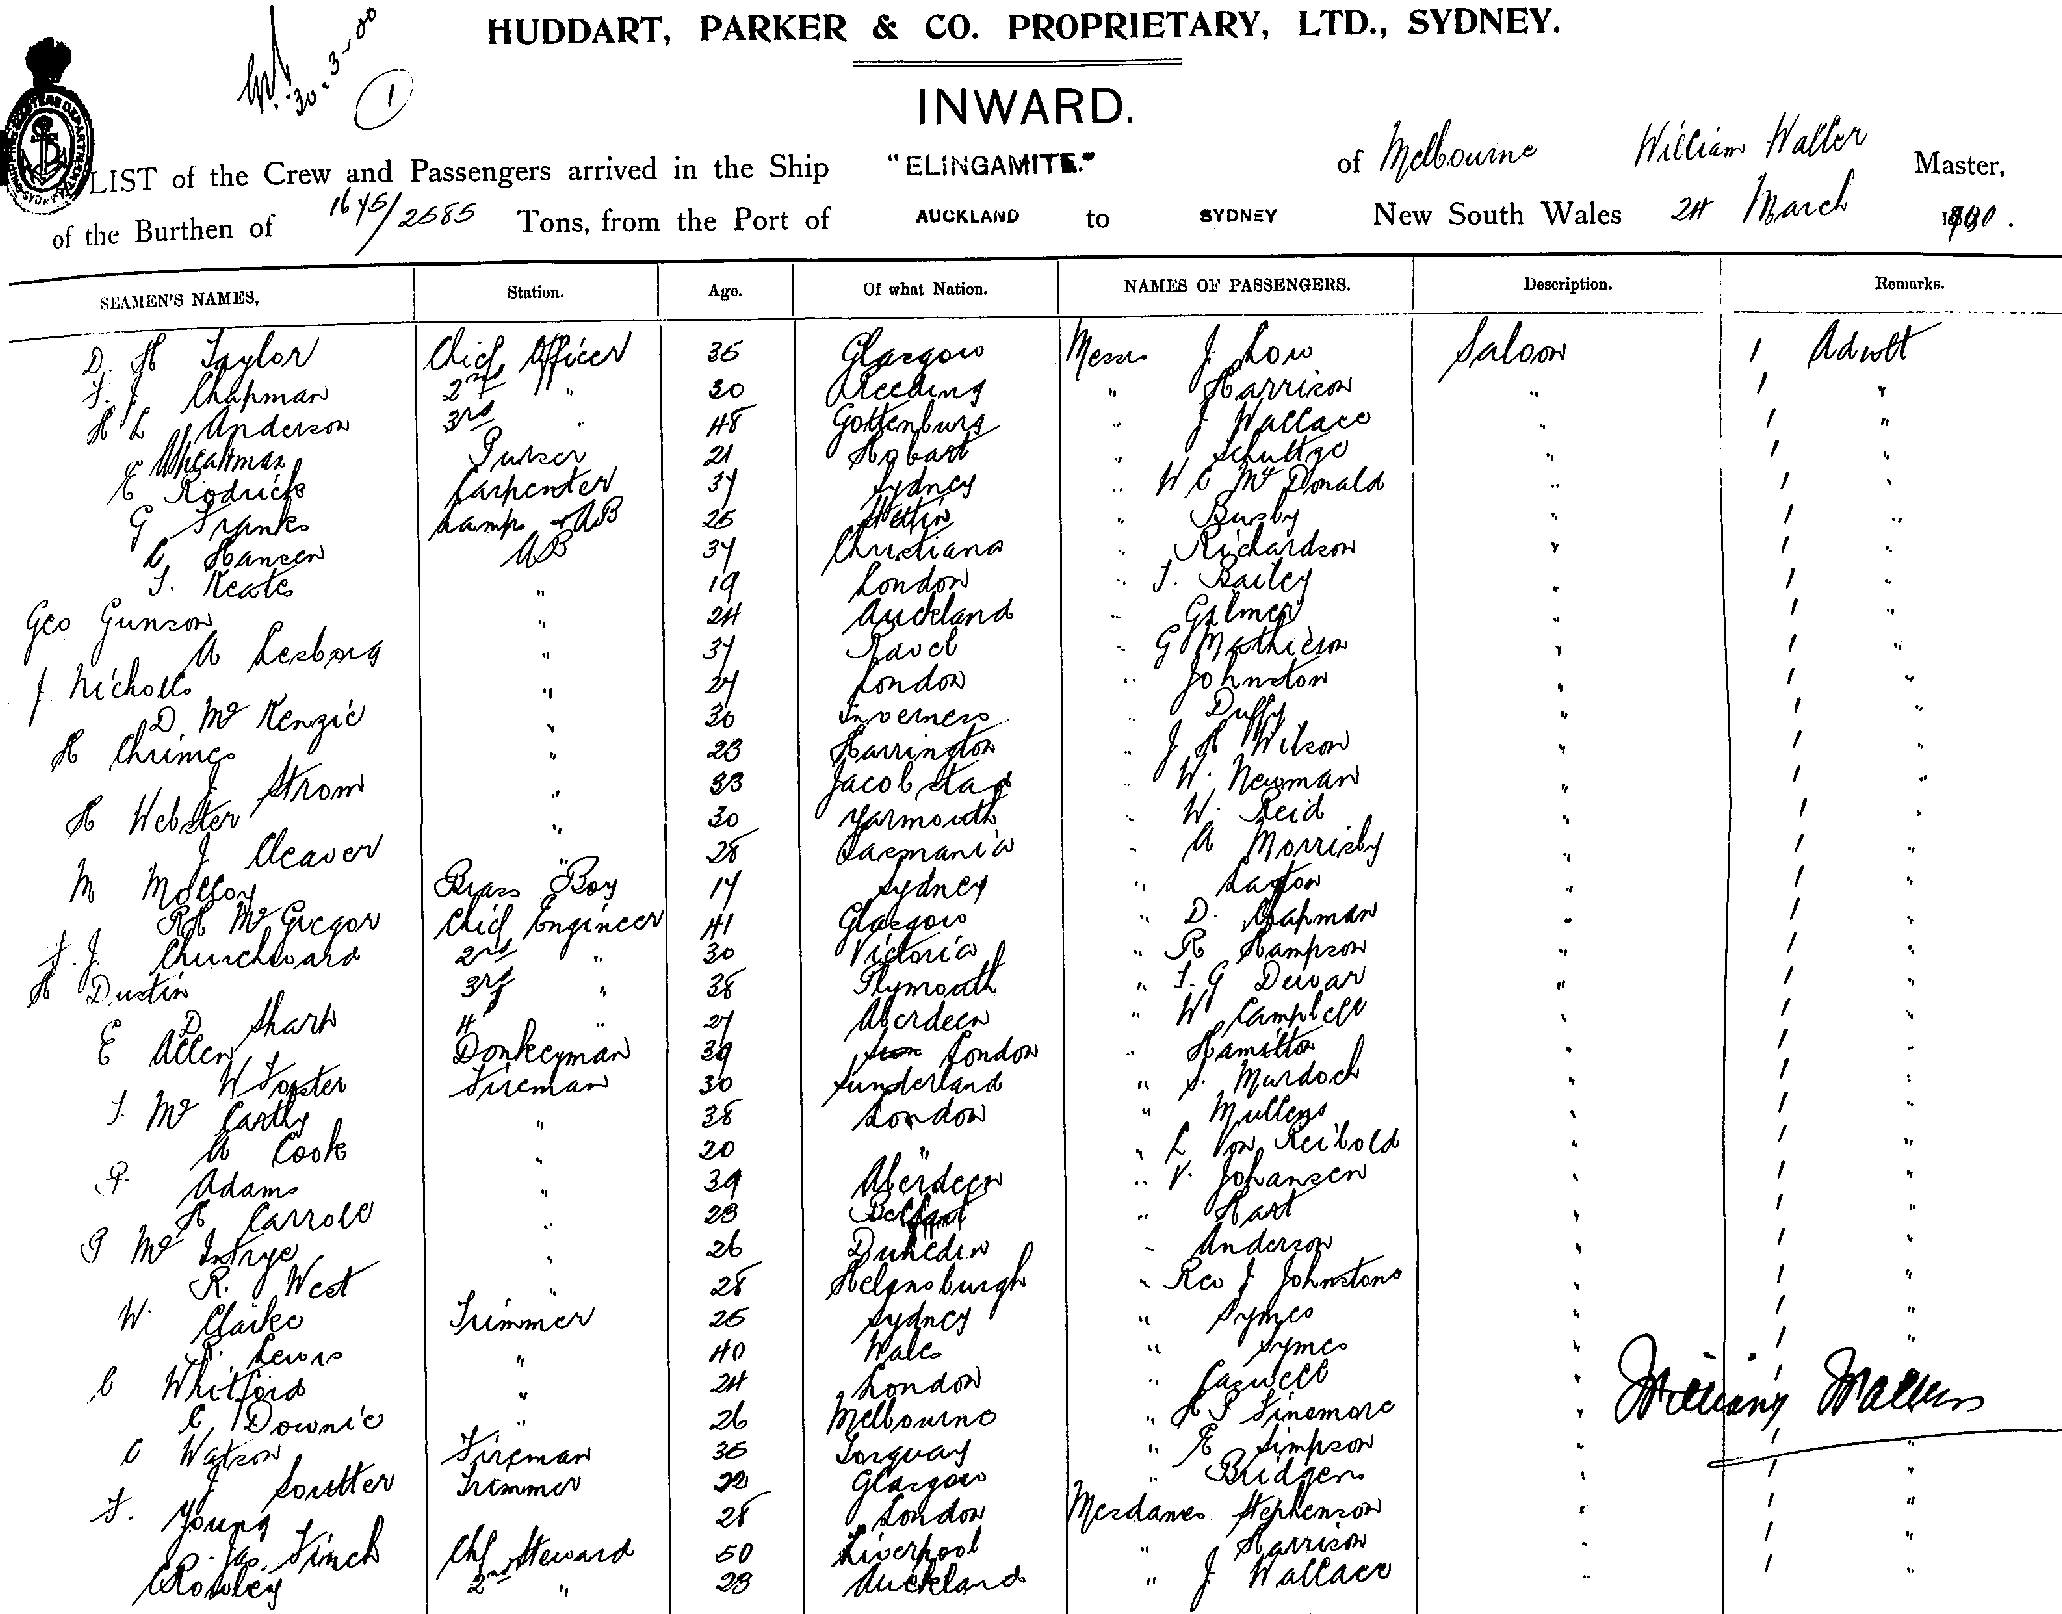 HUDDART, PARKER & CO. PROPRIETARY, LTD., SYDNEY.
30-3-00
1
INWARD.
LIST of the Crew and Passengers arrived in the Ship "ELINGAMITE." of Melbourne William Waller Master,
of the Burthen of 1675/2585 Tons, from the Port of AUCKLAND to SYDNEY New South Wales 24 March 1900.
SEAMEN'S NAMES. Station. Age. Of what Nation. NAMES OF PASSENGERS. Description. Remarks.
D. H Taylor Chief Officer 35 Glasgow Messrs J. Low Saloon 1 Adult
F. J Chapman 2nd " 30 Reeding " Harrison " 1 "
H L Anderson 3rd " 48 Gottenburg " J Wallace " 1 "
Wheatman Purser 21 Hobart " Schultze " 1 "
E Rodrick Carpenter 37 Sydney " W C McDonald " 1 "
G Franks Lamp & AB 25 Stettin " Busby " 1 "
C Hansen AB 37 Christiana " Richardson " 1 "
F. Keats " 19 London " T. Bailey " 1 "
Geo Gunson " 24 Auckland " Gilmer " 1 "
A Lesbong " 37 Ravel " G Mathieson " 1 "
J Nicholls " 27 London " Johnston " 1 "
D McKenzie " 30 Inverness " Duffy " 1 "
H Chrimes " 23 Harrington " J H Wilson " 1 "
J Strom " 33 Jacobstad " W. Newman " 1 "
H Webster " 30 Yarmouth " W. Reid " 1 "
J Cleaver " 28 Tasmania " A Morrisby " 1 "
M Molloy Brass Boy 17 Sydney " Laxton " 1 "
RH McGregor Chief Engineer 41 Glasgow " D. Chapman " 1 "
F. J. Churchward 2nd " 30 Victoria " R Hampson " 1 "
H Dustin 3rd " 38 Plymouth " T. G Dewar " 1 "
D Sharp 4 " 27 Aberdeen " W Campbell " 1 "
E Allen Donkeyman 39 London " Hamilton " 1 "
W Foster Fireman 30 Sunderland " S. Murdoch " 1 "
T McCarthy " 38 London " Mullens " 1 "
A Cook " 20 " " L Von Reibold " 1 "
P. Adams " 39 Aberdeen " V. Johansen " 1 "
H Carroll " 23 Belfast " Hart " 1 "
P McIntrye " 26 Dunedin " Anderson " 1 "
R. West " 28 Helensburgh " Rev J Johnstone " 1 "
W. Clarke Trimmer 25 Sydney " Symes " 1 "
Lewis " 40 Wales " Symes " 1 "
C Whitford " 24 London " Caswell " 1
C Downie " 26 Melbourne " H S Finemore " 1
William Waller
C Watson Fireman 35 Torquay " E Simpson " 1 "
J Soutter Trimmer 22 Glasgow " Bridgens 1 "
F. Young 28 London Mesdames Stephenson " 1 "
Jas Finch Chf Steward 50 Liverpool " Harrison 1 "
C Rowley 2nd " 23 Auckland " J Wallace " 1 "